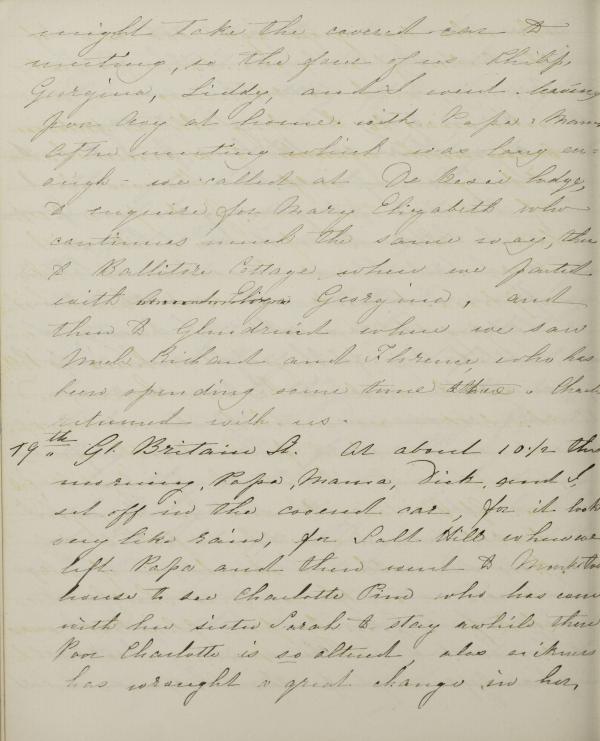 might take the covered car to
meeting, so the four of us Philip,
Georgina, Liddy, and I went leaving
poor at home with Papa & Mama
After meeting which was long en=
ough - we called at De Vesci lodge,
to enquire for Mary Elizabeth who
continues much the same way, then
to Ballitore Cottage where we parted
with Georgina, and
then to Glendruid where we saw
Uncle Richard and Florence, who has
been spending some time there. Charlo
returned with us.
19th Gt. Britain St. At about 10 1/2 this
morning, Papa, Mama, Dick, and I,
set off in the covered car, for it look
very like rain, for Salt Hill where we
left Papa and then went to Monkstow
house to see Charlotte Pim who has come
with her sister Sarah to stay awhile there
Poor Charlotte is so altered, alas sickness
has wrought a great change in her,